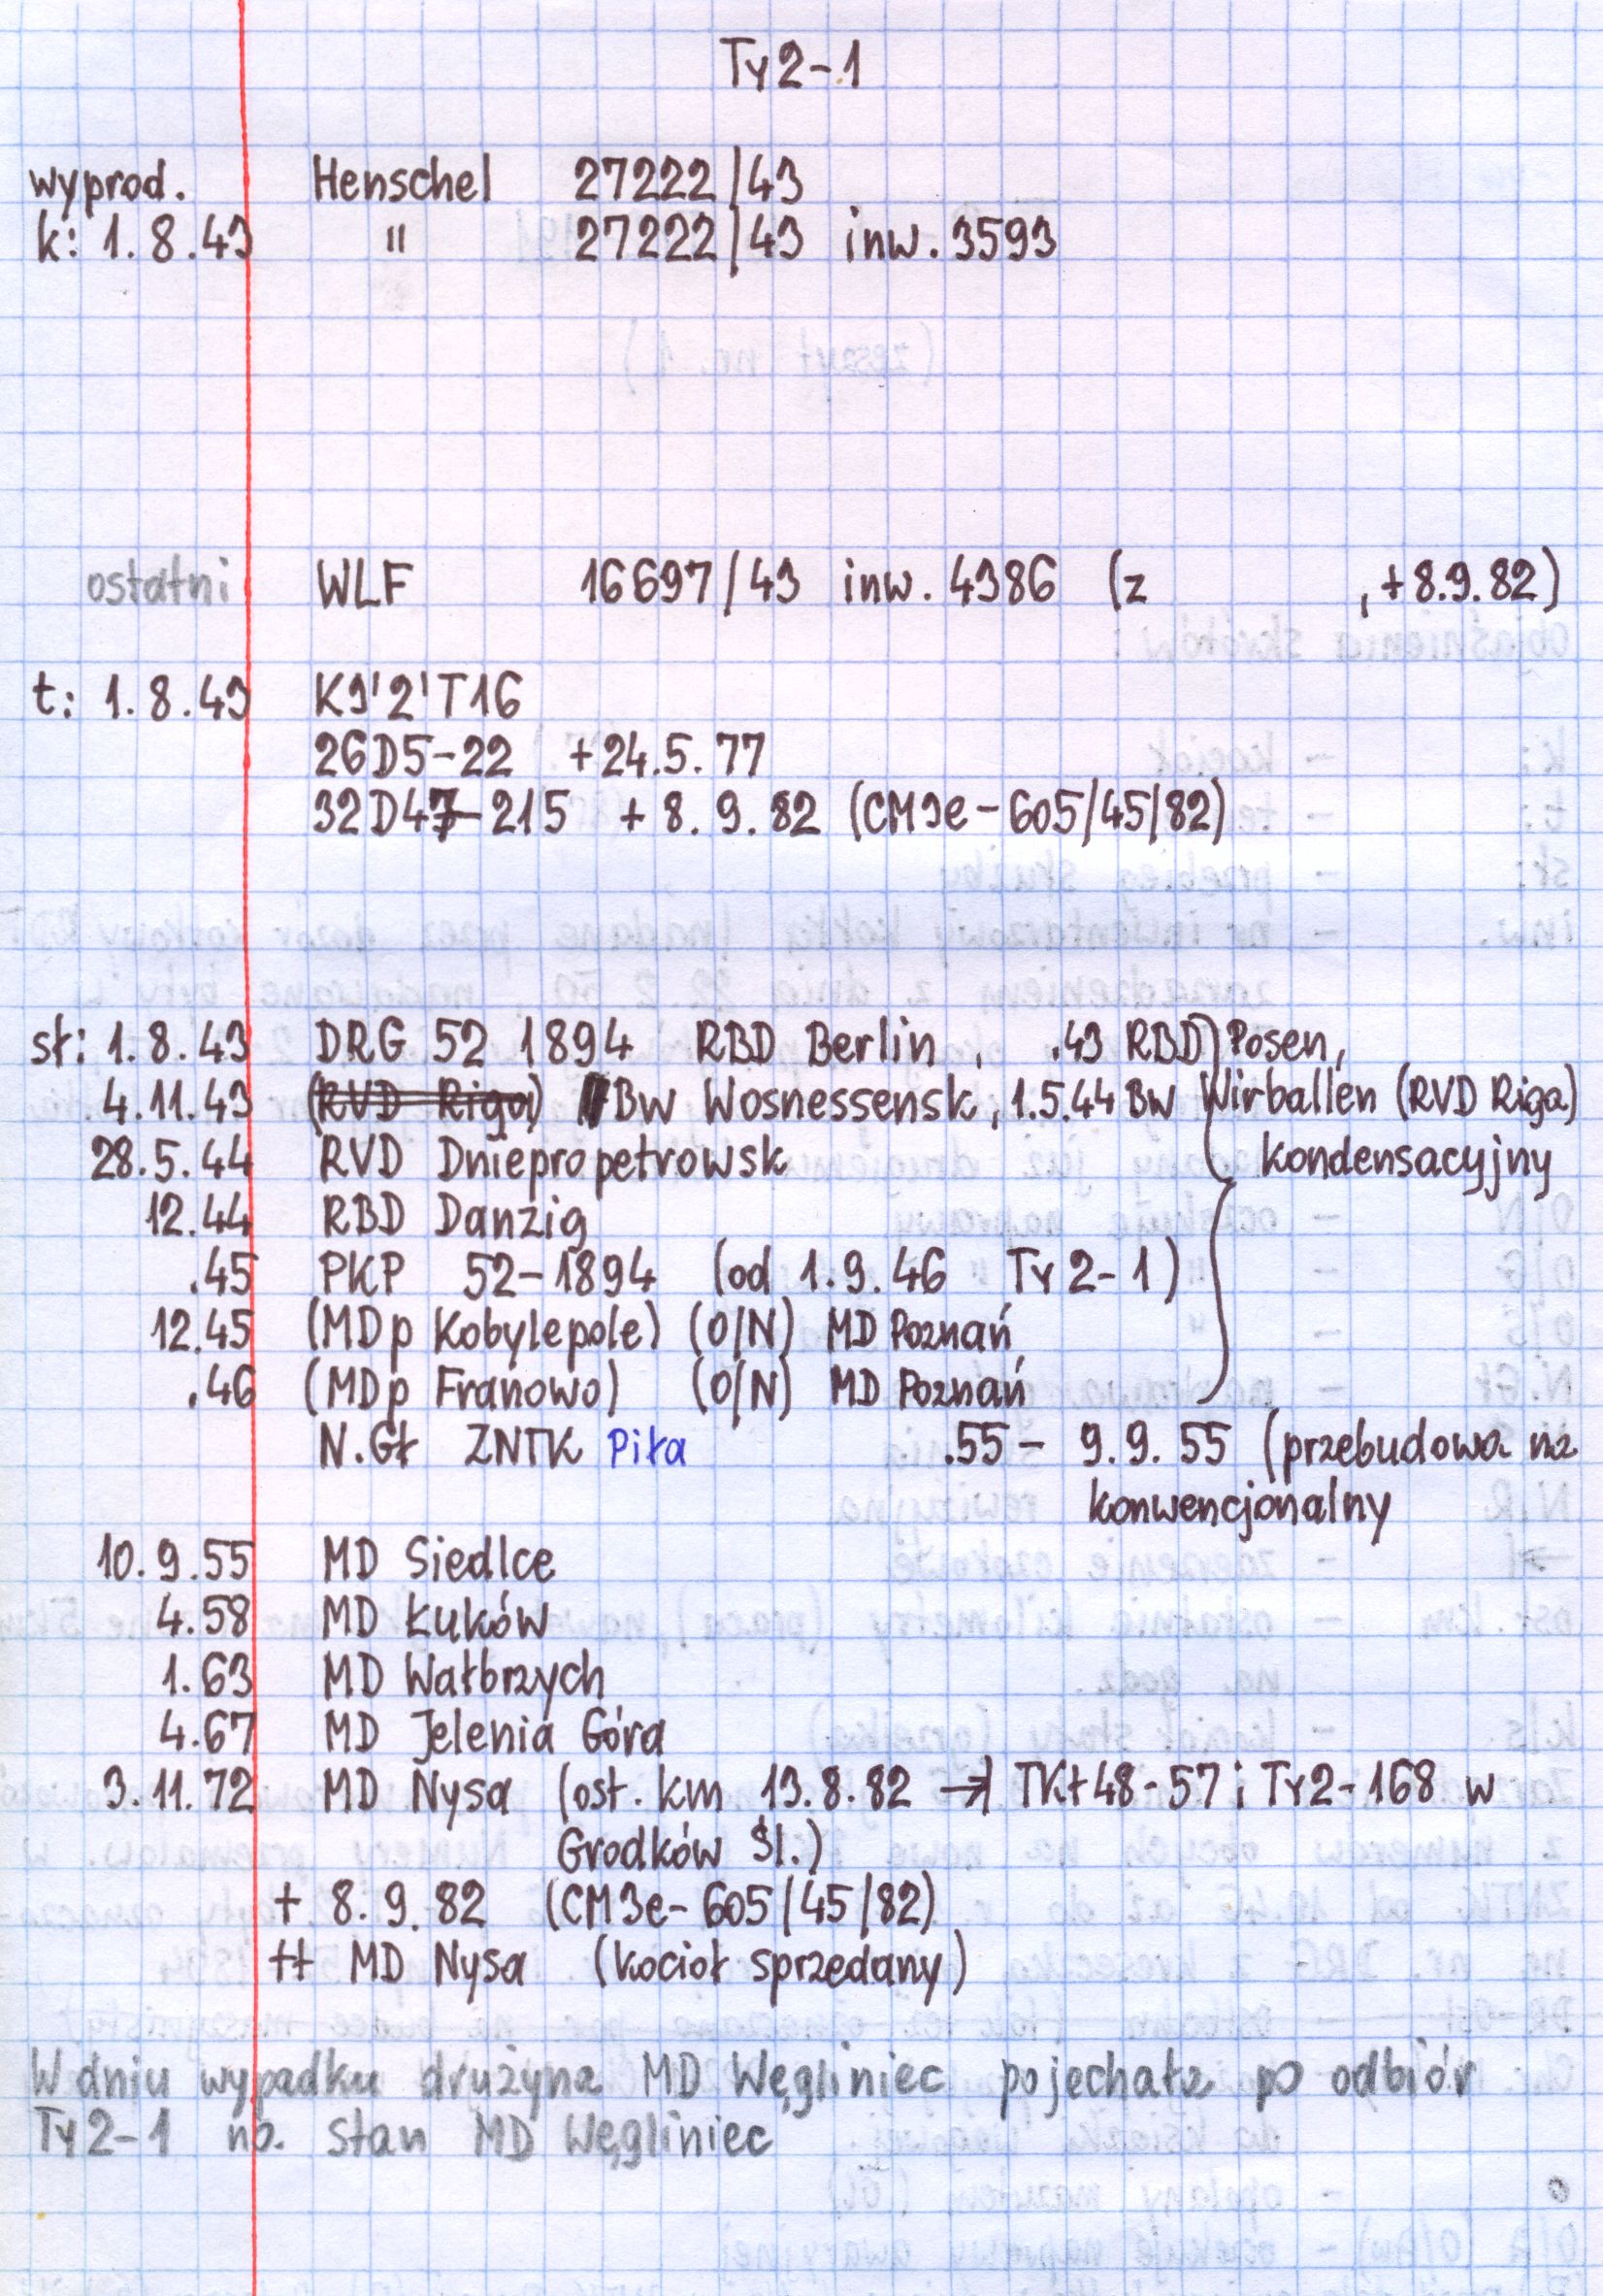 Ty2-1
wyprod. Henschel 27222/43
k: 1.8.43 " 27222/43 inw. 3593
ostatni WLF 16697/43 inw. 4386 (z , +8.9.82)
t: 1.8.43 K3'2'T16
26D5-22 +24.5.77
32D47-215 +8.9.82 (CM3e-605/45/82)
sł: 1.8.43 DRG 52 1894 RBD Berlin, .43 RBD Posen,
4.11.43 (RVD Riga) Bw Wosnessensk, 1.5.44 Bw Wirballen (RVD Riga)
28.5.44 RVD Dniepropetrowsk kondensacyjny
12.44 RBD Danzig
.45 PKP 52-1894 (od 1.9.46 Ty2-1)
12.45 (MDp Kobylepole) (O/N) MD Poznań
.46 (MDp Franowo) (O/N) MD Poznań
N.Gł ZNTK Piła .55 - 9.9.55 (przebudowa na
konwencjonalny
10.9.55 MD Siedlce
4.58 MD Łuków
1.63 MD Wałbrzych
4.67 MD Jelenia Góra
3.11.72 MD Nysa (ost. km 13.8.82 →| TKt48-57 i Ty2-168 w
Grodków Śl.)
+ 8.9.82 (CM3e-605/45/82)
++ MD Nysa (kocioł sprzedany)
W dniu wypadku drużyna MD Węgliniec pojechała po odbiór
Ty2-1 na stan MD Węgliniec